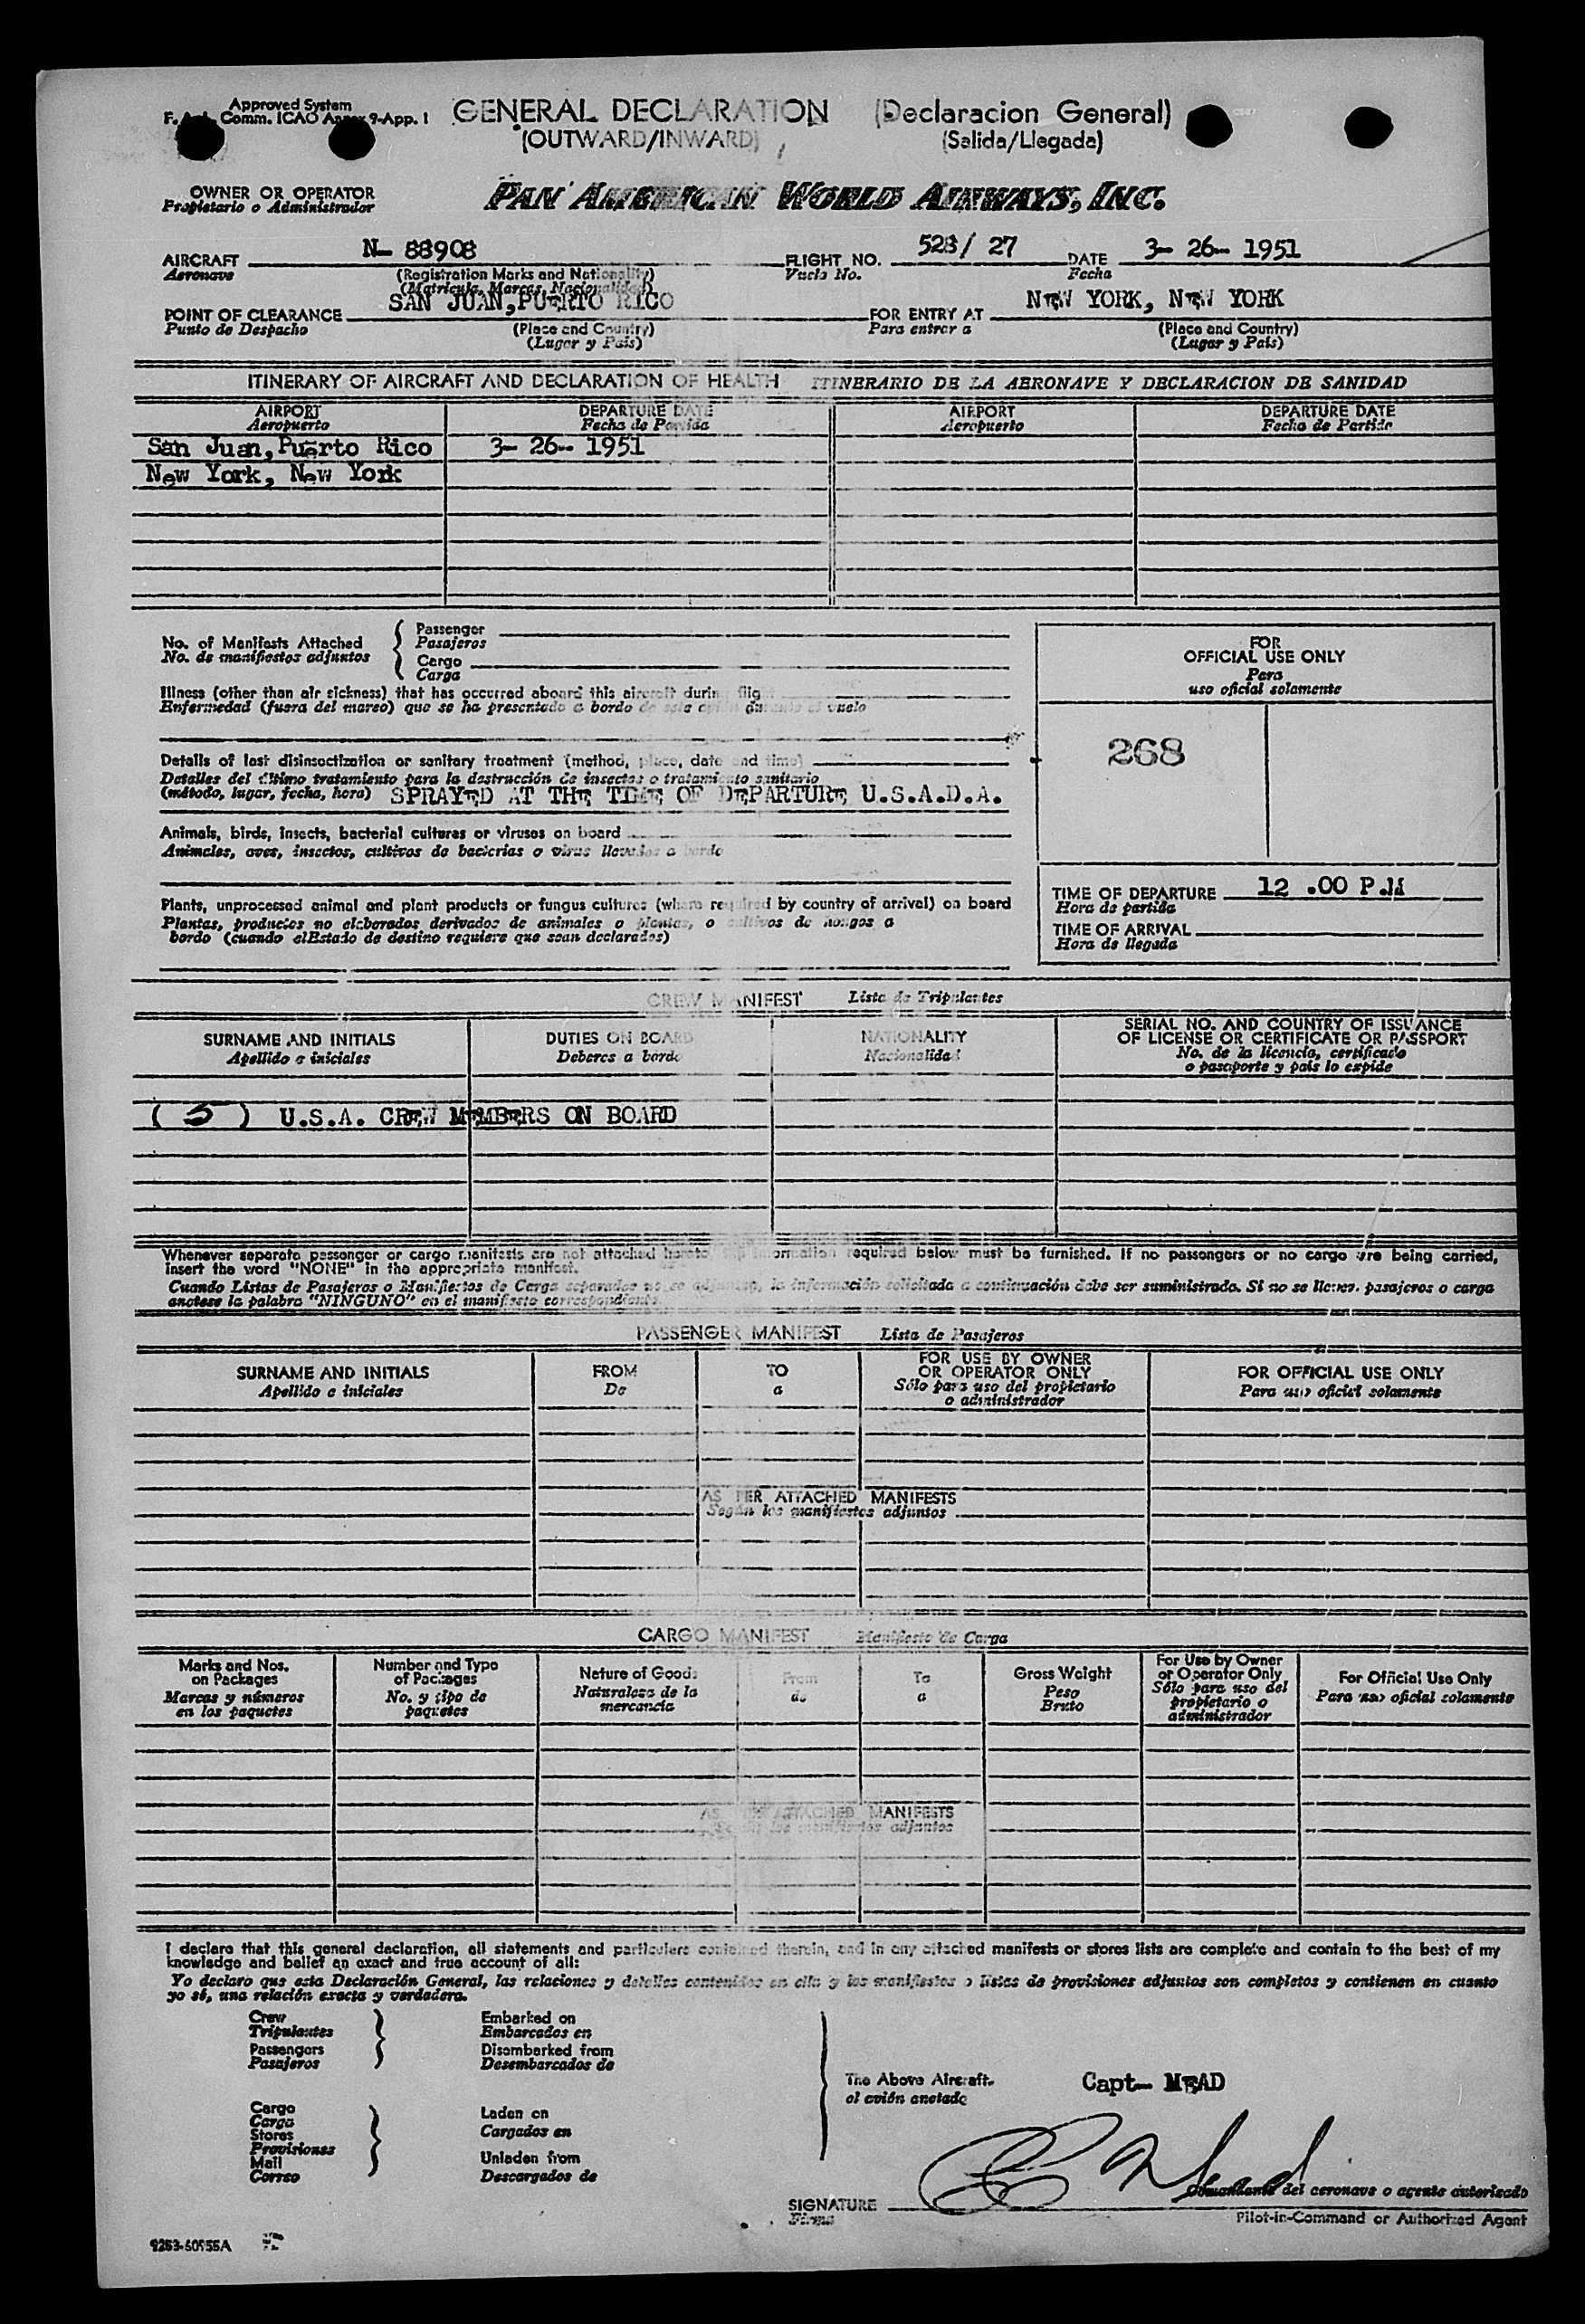 Approved System
Comm. ICAO Annex 9-App. 1
GENERAL DECLARATION (Declaracion General)
(OUTWARD/INWARD) (Salida/Llegada)
OWNER OR OPERATOR
Propietario o Administrador
PAN AMERICAN WORLD AIRWAYS, INC.
AIRCRAFT N- 88908 FLIGHT NO. 528/ 27 DATE 3- 26- 1951
Aeronave (Registration Marks and Nationality) Vuelo No. Fecha
(Matricula, Marcas, Nacionalidad)
POINT OF CLEARANCE SAN JUAN, PUERTO RICO FOR ENTRY AT NEW YORK, NEW YORK
Punto de Despacho (Place and Country) Para entrar a (Place and Country)
(Lugar y País) (Lugar y País)
ITINERARY OF AIRCRAFT AND DECLARATION OF HEALTH ITINERARIO DE LA AERONAVE Y DECLARACION DE SANIDAD
AIRPORT DEPARTURE DATE AIRPORT DEPARTURE DATE
Aeropuerto Fecha de Partida Aeropuerto Fecha de Partida
San Juan, Puerto Rico 3- 26-- 1951
New York, New York
No. of Manifests Attached { Passenger
No. de manifiestos adjuntos Pasajeros
Cargo
Carga
FOR
OFFICIAL USE ONLY
Para
uso oficial solamente
268
Illness (other than air sickness) that has occurred aboard this aircraft during flight
Enfermedad (fuera del mareo) que se ha presentado a bordo de este avión durante el vuelo
Details of last disinsectization or sanitary treatment (method, place, date and time)
Detalles del último tratamiento para la destrucción de insectos o tratamiento sanitario
(método, lugar, fecha, hora) SPRAYED AT THE TIME OF DEPARTURE U.S.A.D.A.
Animals, birds, insects, bacterial cultures or viruses on board
Animales, aves, insectos, cultivos de bacterias o virus llevados a bordo
Plants, unprocessed animal and plant products or fungus cultures (where required by country of arrival) on board
Plantas, productos no elaborados derivados de animales o plantas, o cultivos de hongos a
bordo (cuando elEstado de destino requiere que sean declarados)
TIME OF DEPARTURE 12 .00 P.M
Hora de partida
TIME OF ARRIVAL
Hora de llegada
CREW MANIFEST Lista de Tripulantes
SURNAME AND INITIALS DUTIES ON BOARD NATIONALITY SERIAL NO. AND COUNTRY OF ISSUANCE
OF LICENSE OR CERTIFICATE OR PASSPORT
Apellido e iniciales Deberes a bordo Nacionalidad No. de la licencia, certificado
o pasaporte y país lo expide
( 5 ) U.S.A. CREW MEMBERS ON BOARD
Whenever separate passenger or cargo manifests are not attached hereto, the information required below must be furnished. If no passengers or no cargo are being carried,
insert the word "NONE" in the appropriate manifest.
Cuando Listas de Pasajeros o Manifiestos de Carga separados no se adjuntan, la información solicitada a continuación debe ser suministrada. Si no se llevan pasajeros o carga
anotese la palabra "NINGUNO" en el manifiesto correspondiente
PASSENGER MANIFEST Lista de Pasajeros
SURNAME AND INITIALS FROM TO FOR USE BY OWNER
OR OPERATOR ONLY FOR OFFICIAL USE ONLY
Apellido e iniciales De a Sólo para uso del propietario
o administrador Para uso oficial solamente
AS PER ATTACHED MANIFESTS
Según los manifiestos adjuntos
CARGO MANIFEST Manifiesto de Carga
Marks and Nos.
on Packages
Marcas y números
en los paquetes
Number and Type
of Packages
No. y tipo de
paquetes
Nature of Goods
Naturaleza de la
mercancía
From
de
To
a
Gross Weight
Peso
Bruto
For Use by Owner
or Operator Only
Sólo para uso del
propietario o
administrador
For Official Use Only
Para uso oficial solamente
AS PER ATTACHED MANIFESTS
Según los manifiestos adjuntos
I declare that this general declaration, all statements and particulars contained therein, and in any attached manifests or stores lists are complete and contain to the best of my
knowledge and belief an exact and true account of all:
Yo declaro que esta Declaración General, las relaciones y detalles contenidos en ella y los manifiestos o listas de provisiones adjuntos son completos y contienen en cuanto
yo sé, una relación exacta y verdadera.
Crew
Tripulantes
Passengers
Pasajeros
Embarked on
Embarcados en
Disembarked from
Desembarcados de
Cargo
Carga
Stores
Provisiones
Mail
Correo
Laden on
Cargados en
Unladen from
Descargados de
The Above Aircraft.
el avión anotado
Capt- MEAD
C Mead
Comandante del aeronave o agente autorizado
SIGNATURE
Firma
Pilot-in-Command or Authorized Agent